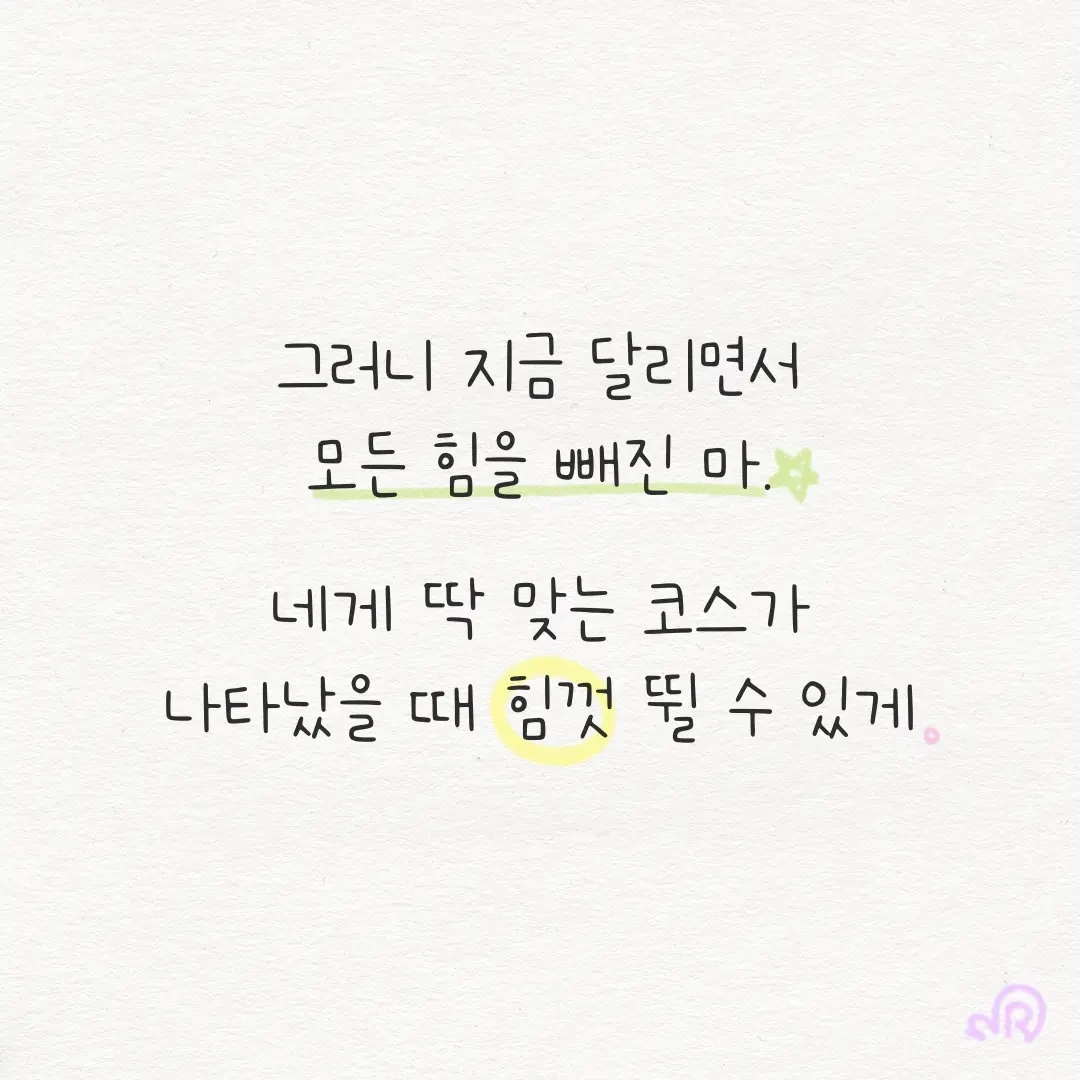 그러니 지금 달리면서
모든 힘을 빼진 마.
네게 딱 맞는 코스가
나타났을 때 힘껏 뛸 수 있게.